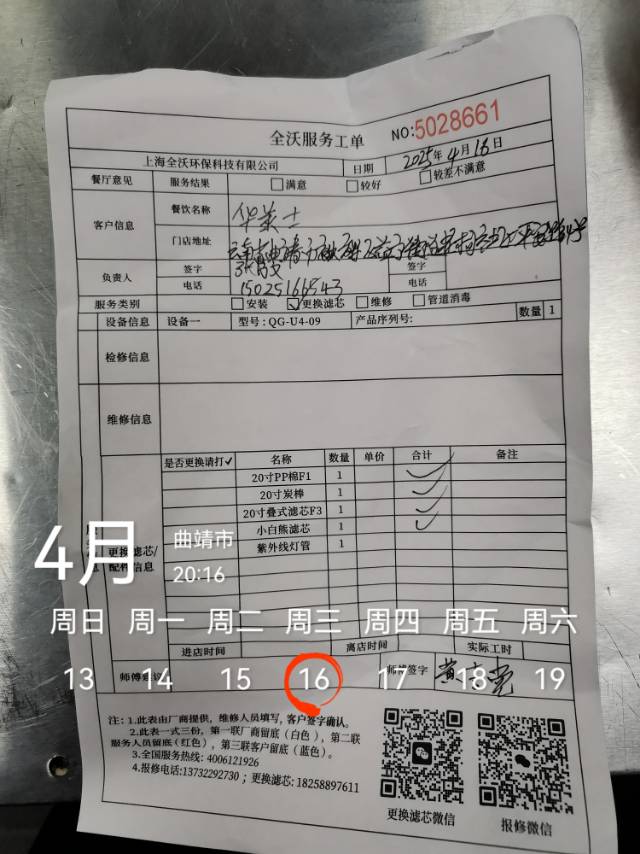 全沃服务工单
NO:5028661
上海全沃环保科技有限公司 日期 2025年4月16日
餐厅意见 服务结果 满意 较好 较差不满意
客户信息 餐饮名称 华莱士
门店地址
负责人 签字 签字
电话 15025166543 电话
服务类别 安装 更换滤芯 维修 管道消毒
设备信息 设备一 型号:QG-U4-09 产品序列号: 数量 1
检修信息
维修信息
是否更换请打✓ 名称 数量 单价 合计 备注
20寸PP棉F1 1 ✓
20寸炭棒 1 ✓
20寸叠式滤芯F3 1 ✓
小白熊滤芯 1 ✓
紫外线灯管 1
更换滤芯/
配件信息
4月 曲靖市
20:16
周日 周一 周二 周三 周四 周五 周六
13 14 15 16 17 18 19
进店时间 离店时间 实际工时
师傅 师傅签字 黄
注:1.此表由厂商提供,维修人员填写,客户签字确认。
2.此表一式三份,第一联厂商留底(白色),第二联
服务人员留底(红色),第三联客户留底(蓝色)。
3.全国服务热线: 4006121926
4.报修电话:13732292730 ; 更换滤芯: 18258897611
更换滤芯微信 报修微信